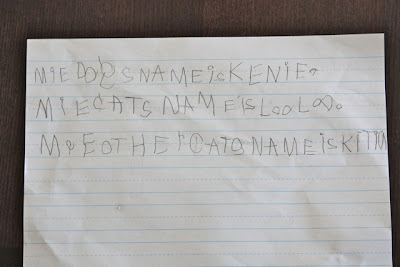 MIE DOGS NAME is KENIE.
MIE CATS NAME iS LOOLOO.
MIE OTHEr CATS NAME iS KITTN